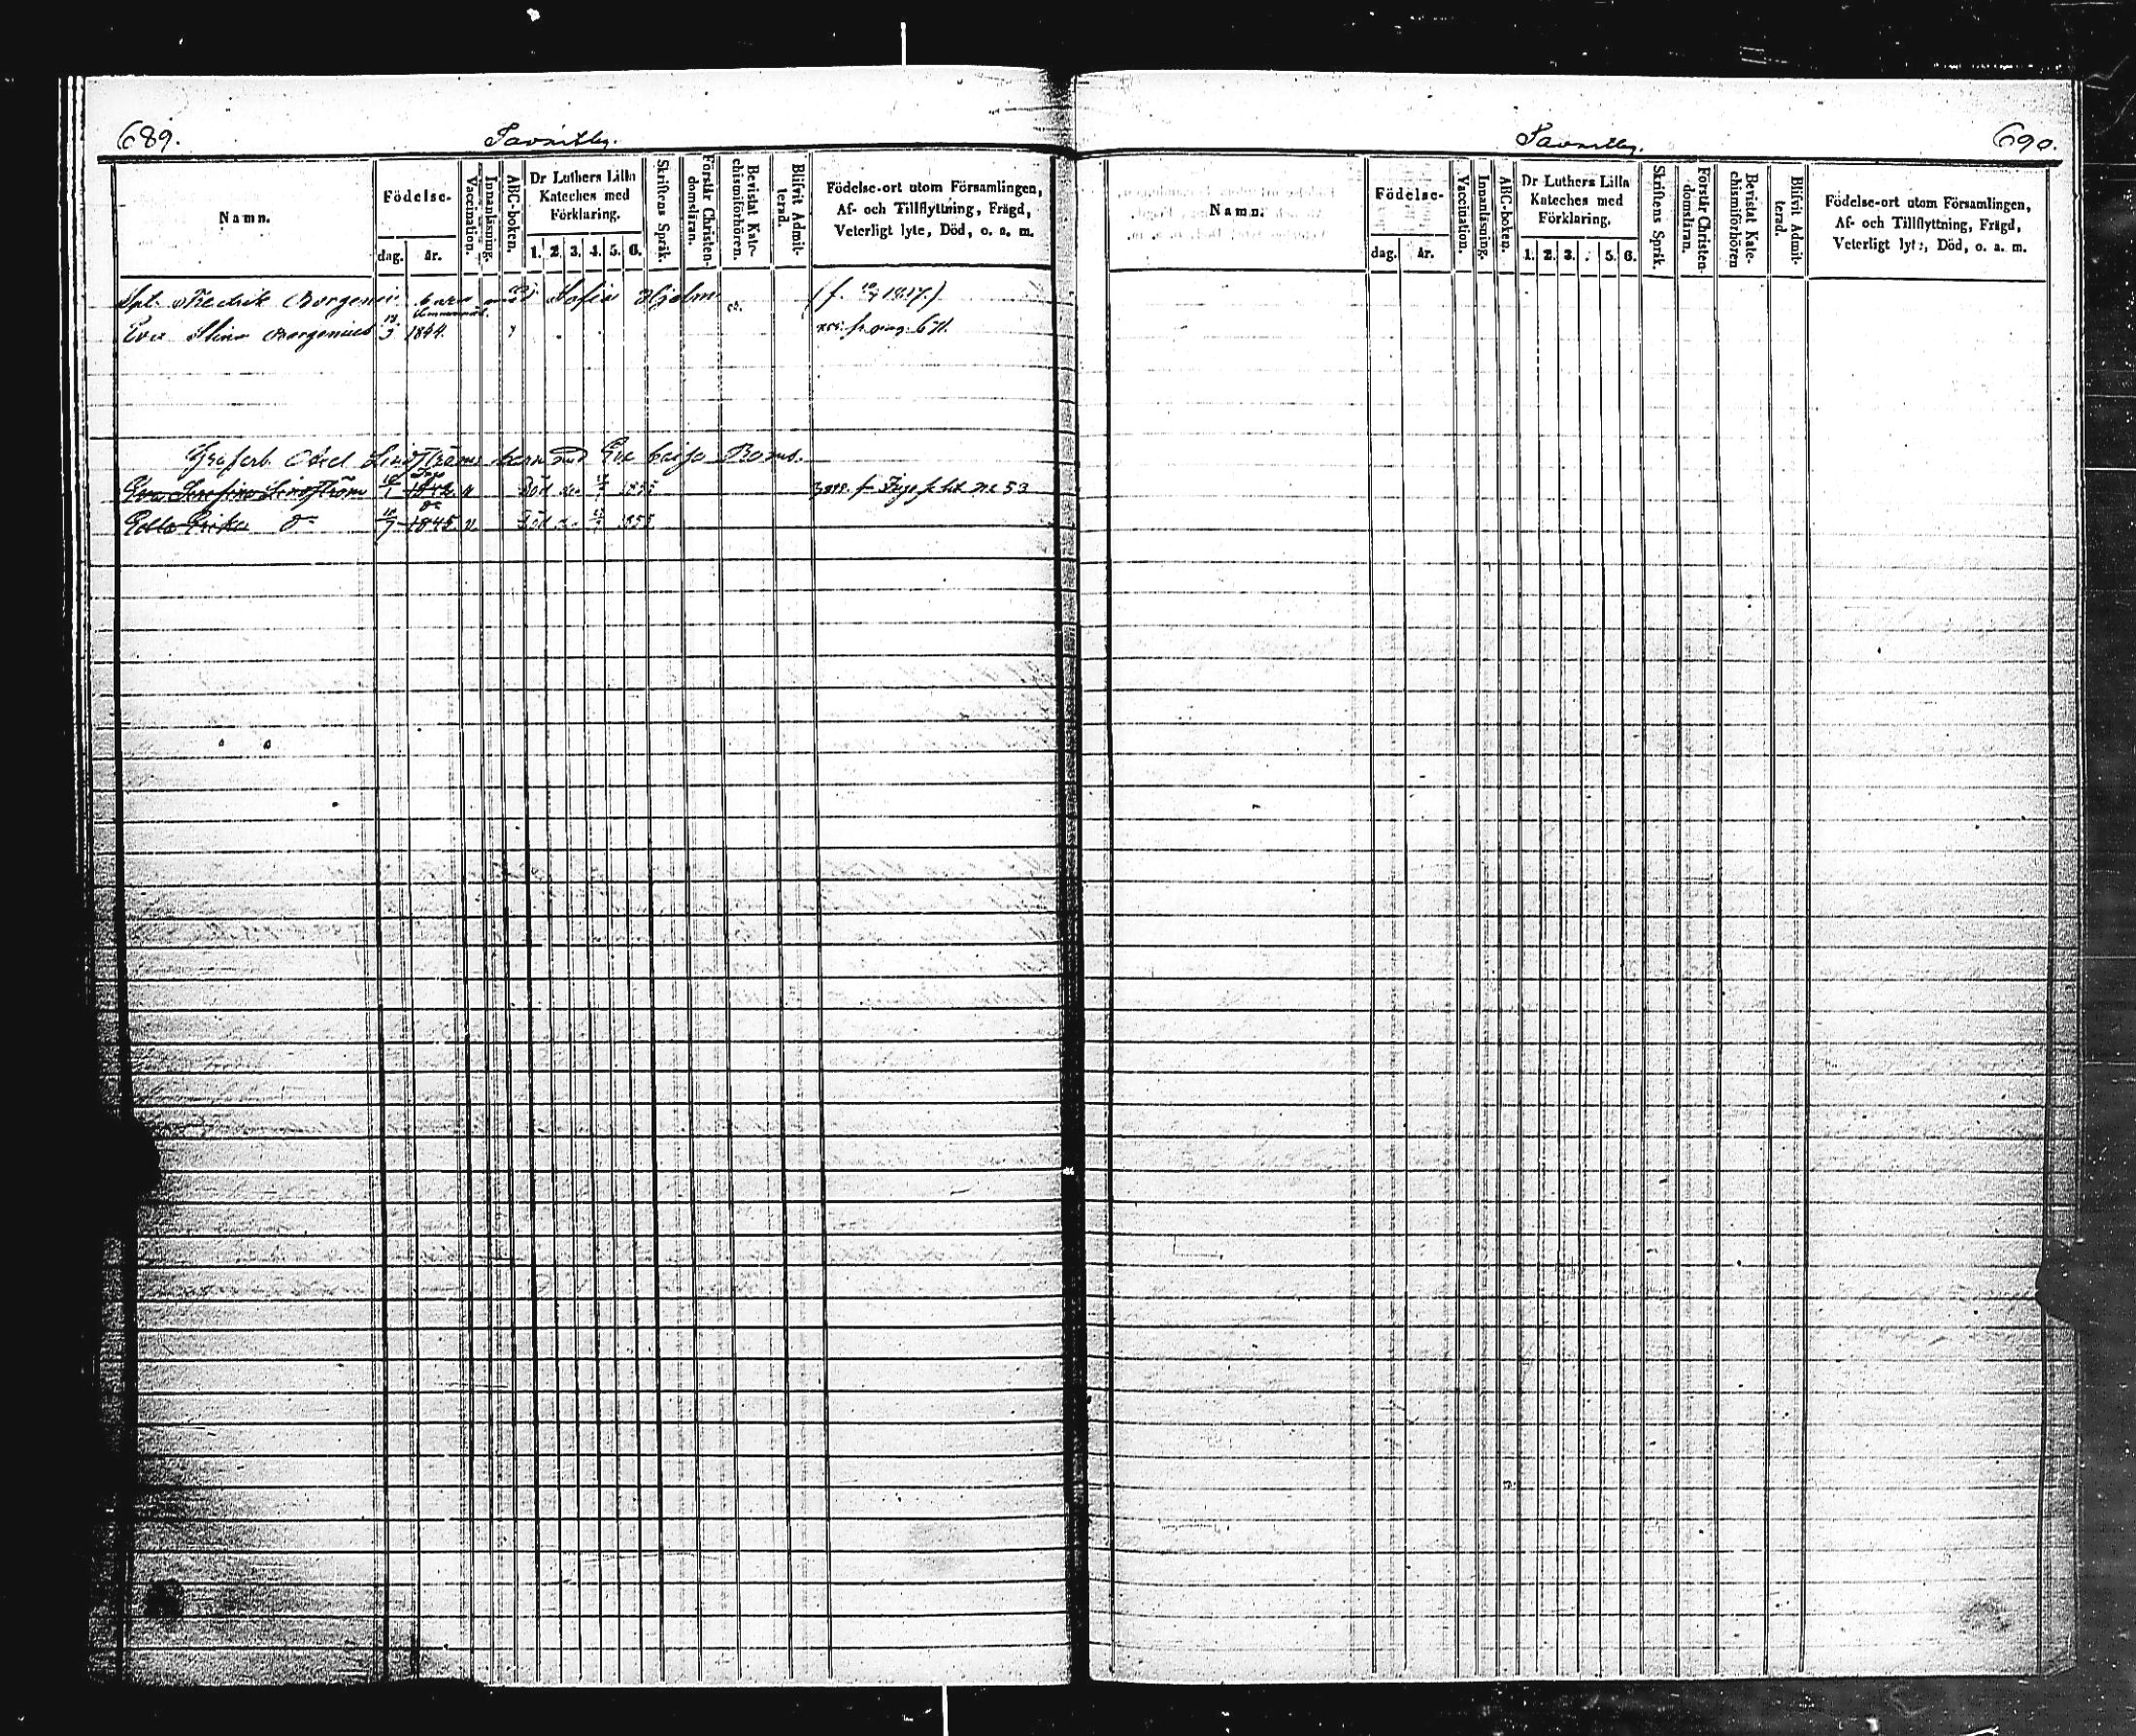 689.
Namn.
Födelse-
dag.
år.
Vaccination.
Innanläsning.
ABC-boken.
Dr Luthers Lilla
Kateches med
Förklaring.
1. 2. 3. 4. 5. 6.
Skriftens Språk.
Förstår Christen-
domsläran.
Bevistat Kate-
chismiförhören.
Blifvit Admit-
terad.
Födelse-ort utom Församlingen,
Af- och Tillflyttning, Frägd,
Veterligt lyte, Död, o. s. m.
Fredrik Borgenius barn med Sofia Hjelm
Eva Stina Borgenius 3 1844. 671.
Axel Lindströms barn med Eva Caisa
Eva Serafina Lindström 1842 v Död 1855 53
Erika Do 7 1845 v Död 1855
690.
Namn.
Födelse-
dag.
år.
Vaccination.
Innanläsning.
ABC-boken.
Dr Luthers Lilla
Kateches med
Förklaring.
1. 2. 3. . 5. 6.
Skriftens Språk.
Förstår Christen-
domsläran.
Bevistat Kate-
chismiförhören
Blifvit Admit-
terad.
Födelse-ort utom Församlingen,
Af- och Tillflyttning, Frägd,
Veterligt lyte, Död, o. a. m.